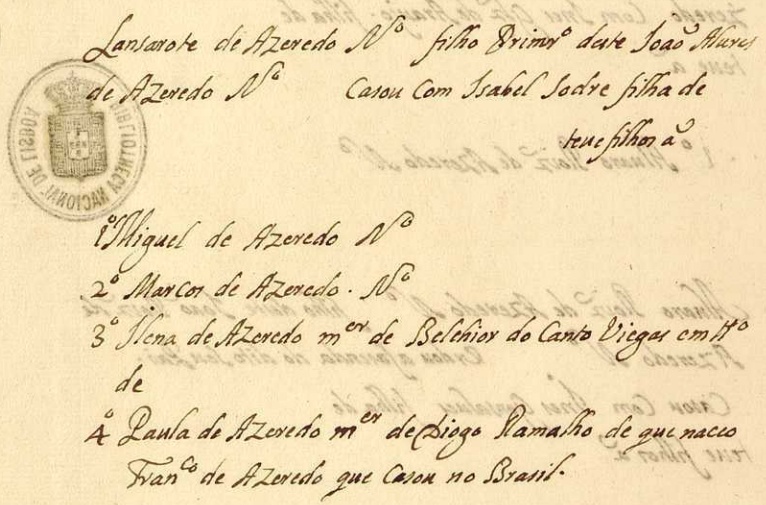 Lansarote de Azeredo Nº filho Primrº deste Joaõ Alures
de Azeredo Nº Casou Com Isabel Sodre filha de
teue filhos a
1º Miguel de Azeredo Nº
2º Marcos de Azeredo. Nº
3º Ilena de Azeredo mer de Belchior do Canto Viegas em
de
4º Paula de Azeredo mer de Diogo Ramalho de que naceo
Franco de Azeredo que Casou no Brasil.
BIBLIOTHECA NACIONAL DE LISBOA